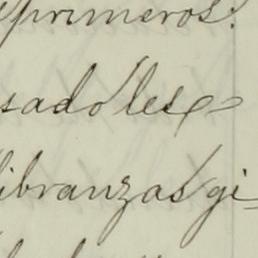 primeros:
sado les
libranzas gi-